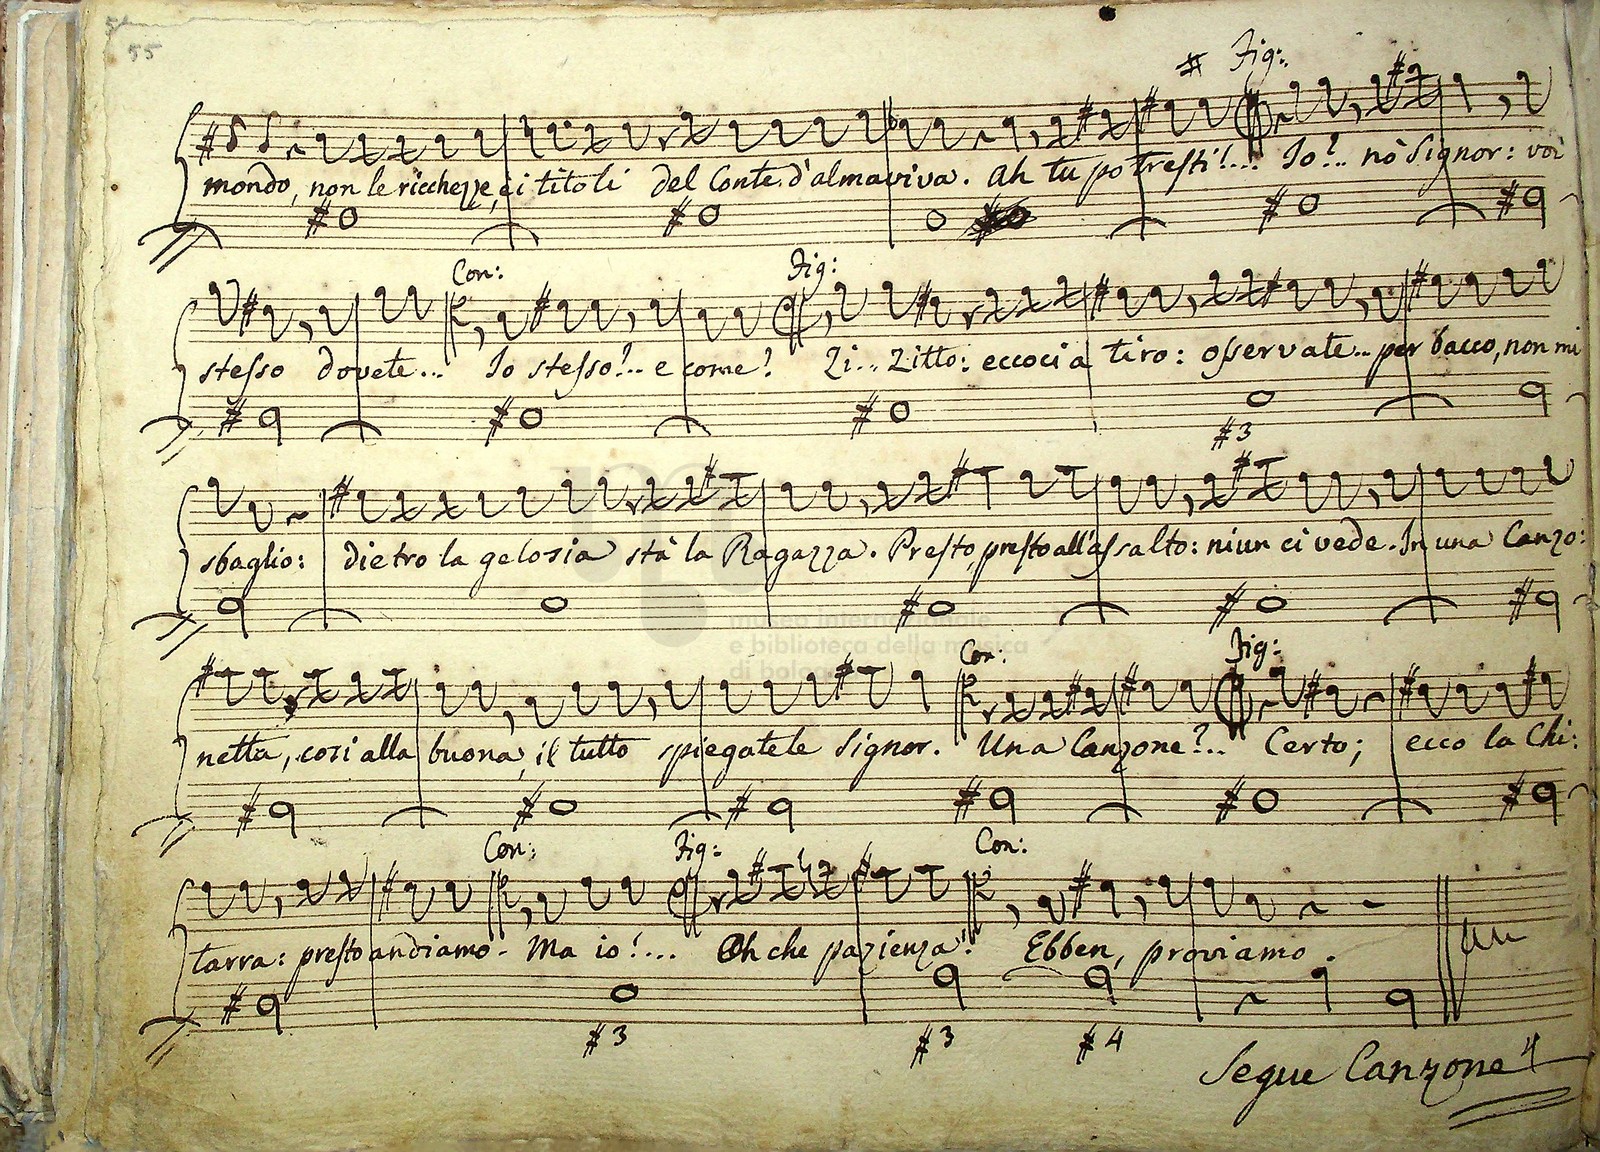 55
Fig:
mondo, non le ricchezze, ei titoli del Conte d'almaviva. Ah tu potresti!... Io?.. nò Signor: voi
Con: Fig:
stesso dovete... Io stesso?.. e come? Zi... Zitto: eccoci a tiro: osservate... per bacco, non mi
#3
sbaglio: dietro la gelosia stà la Ragazza. Presto, presto all'assalto: niun ci vede. In una Canzo:
museo internazionale
e biblioteca della musica
di bologna
Con: Fig:
netta, così alla buona, il tutto spiegatele Signor. Una Canzone?.. Certo; ecco la Chi:
Con: Fig: Con:
tarra: presto andiamo. Ma io!... Oh che pazienza! Ebben, proviamo.
#3 #3 #4
Segue Canzone